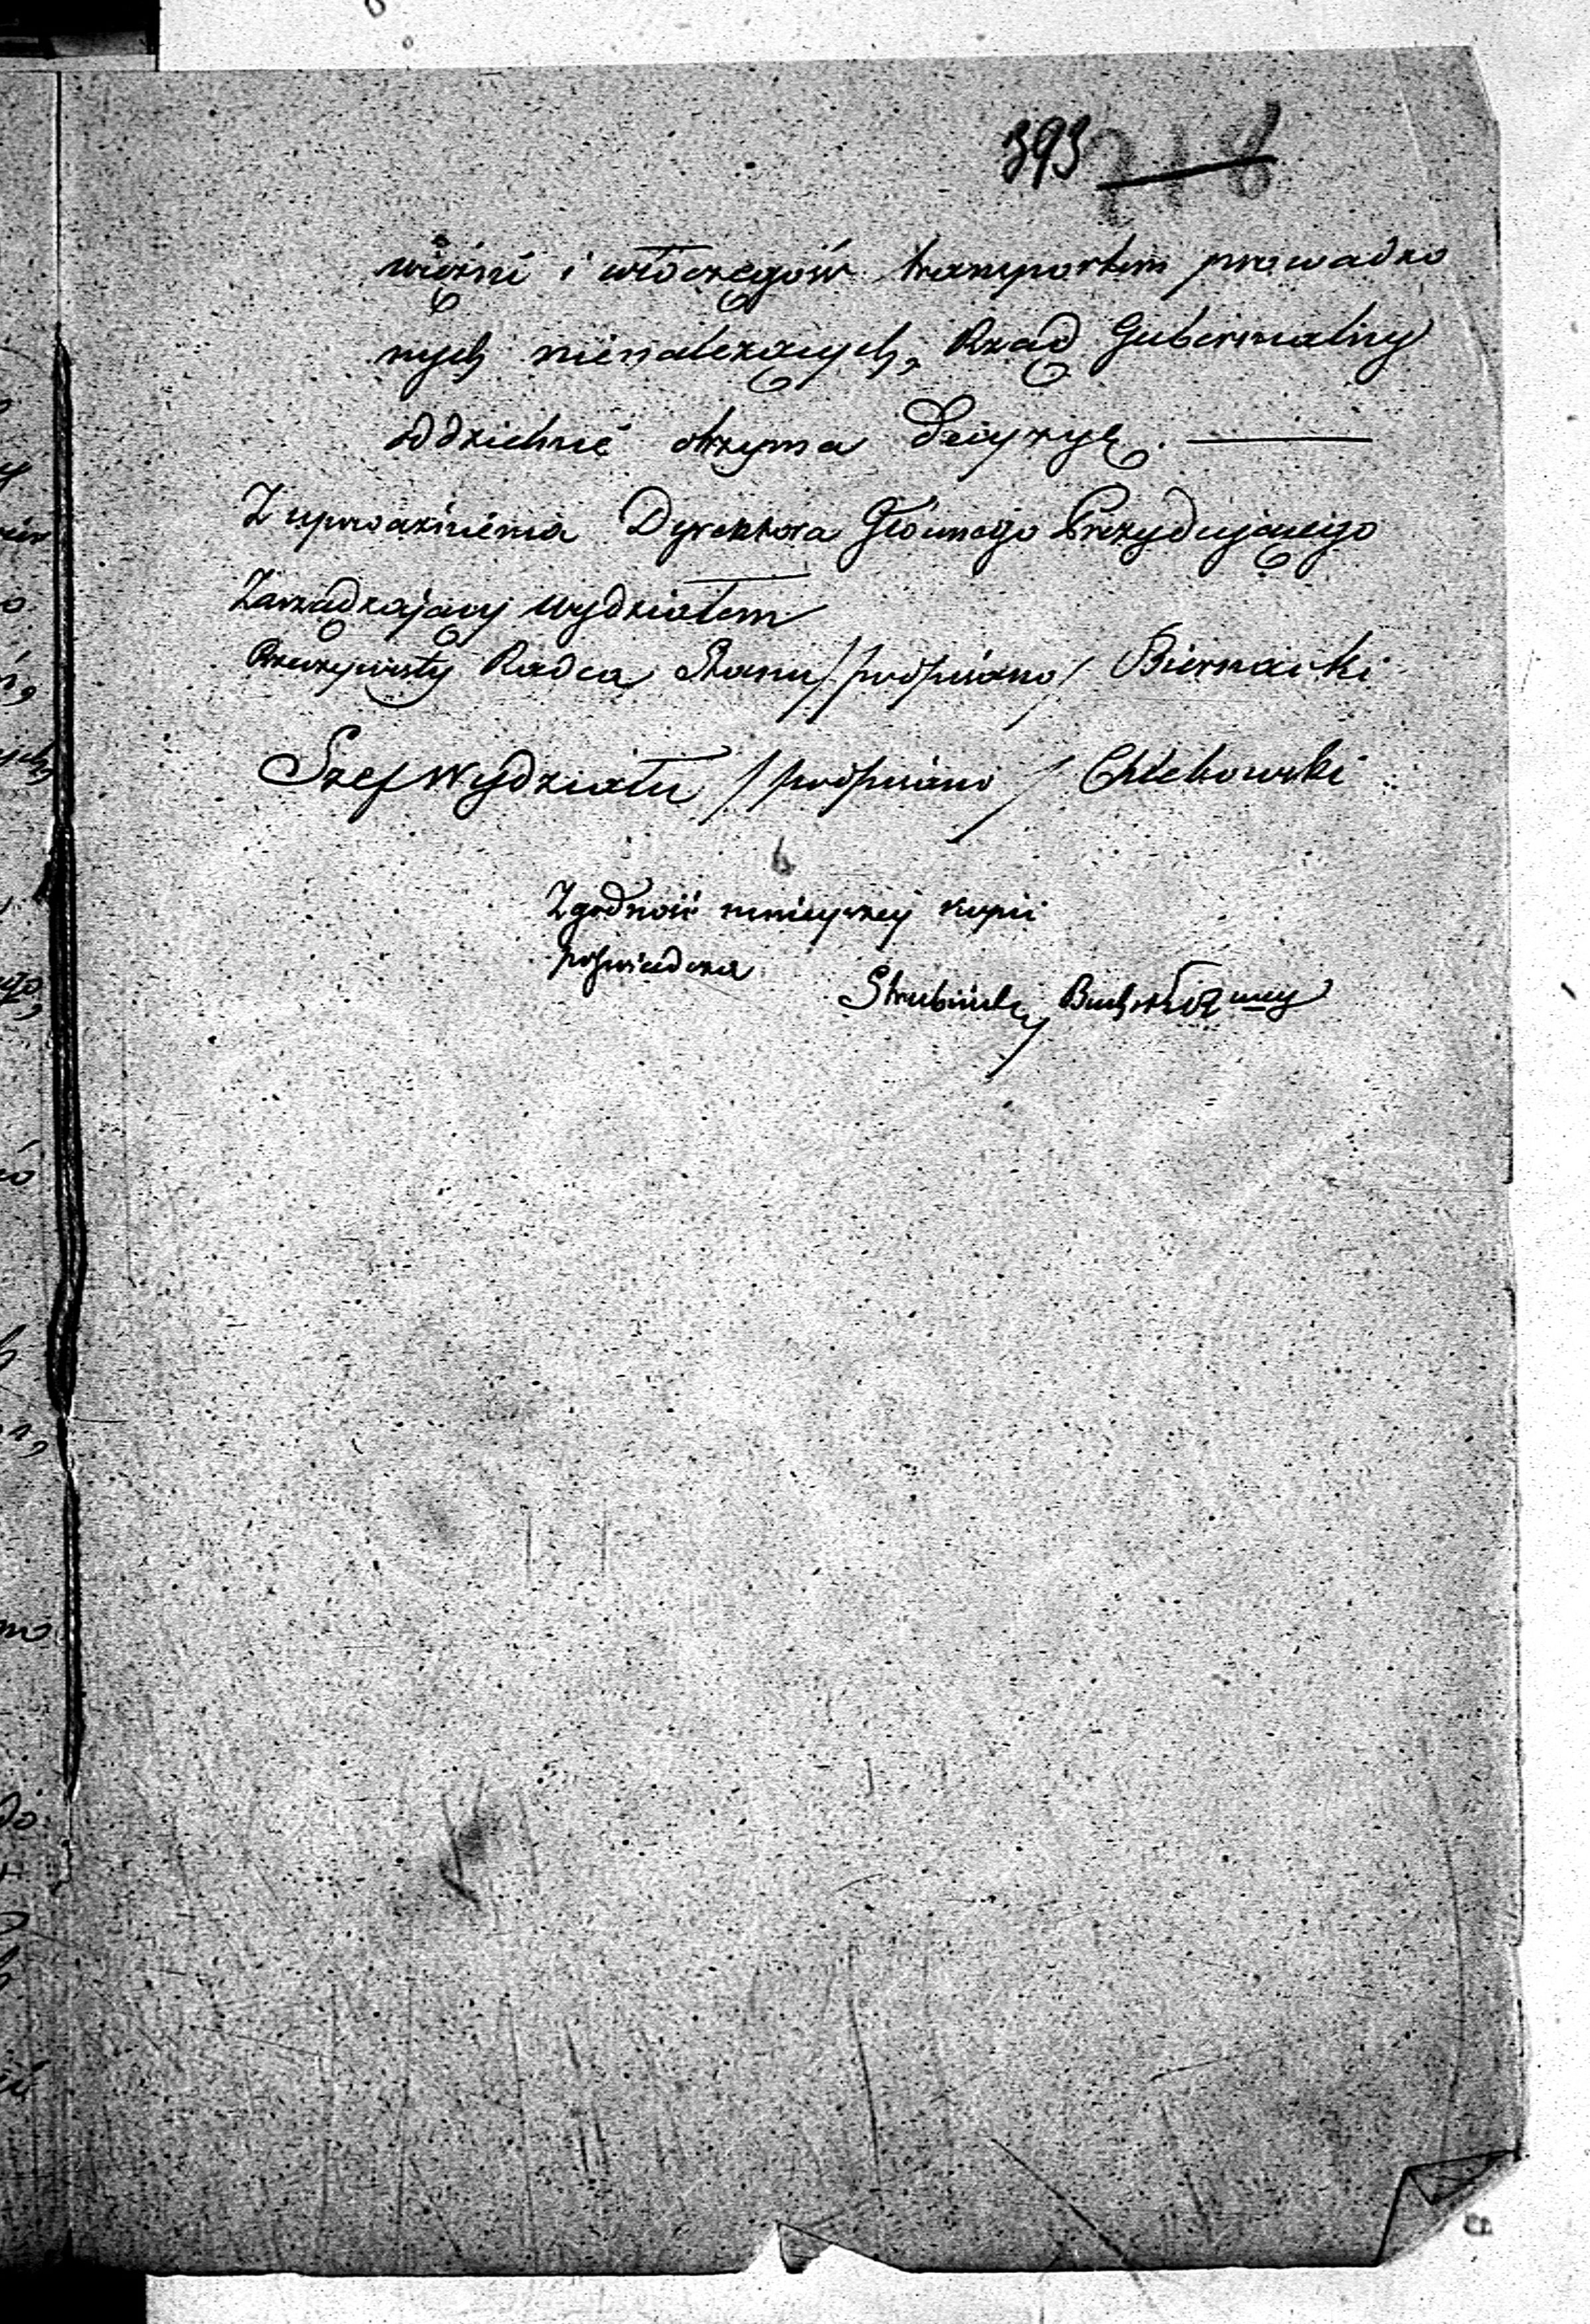 393 218
więźni i włóczęgów transportem prowadzo
nych nienależących, Rząd Gubernialny
oddzielnie otrzyma Decyzyę.
Z upoważnienia Dyrektora Głównego Prezydującego
Zarządzający Wydziałem
Rzeczywisty Radca Stanu /podpisano/ Biernacki
Szef Wydziału /podpisano/ Chlebowski
Zgodność niniejszej kopii
poświadcza